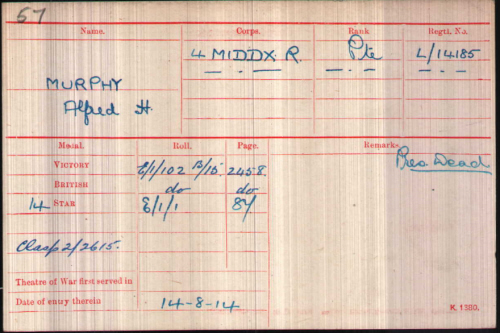 57
Name. Corps. Rank Regtl. No.
4 MIDDX R. Pte L/14185
— · — — · — — · —
MURPHY
Alfred H.
Medal. Roll. Page. Remarks.
VICTORY E/1/102 B/15. 2458. Pres Dead
BRITISH do do
14 STAR E/1/1 84
Clasp 2/2615.
Theatre of War first served in
Date of entry therein 14-8-14
K. 1380.